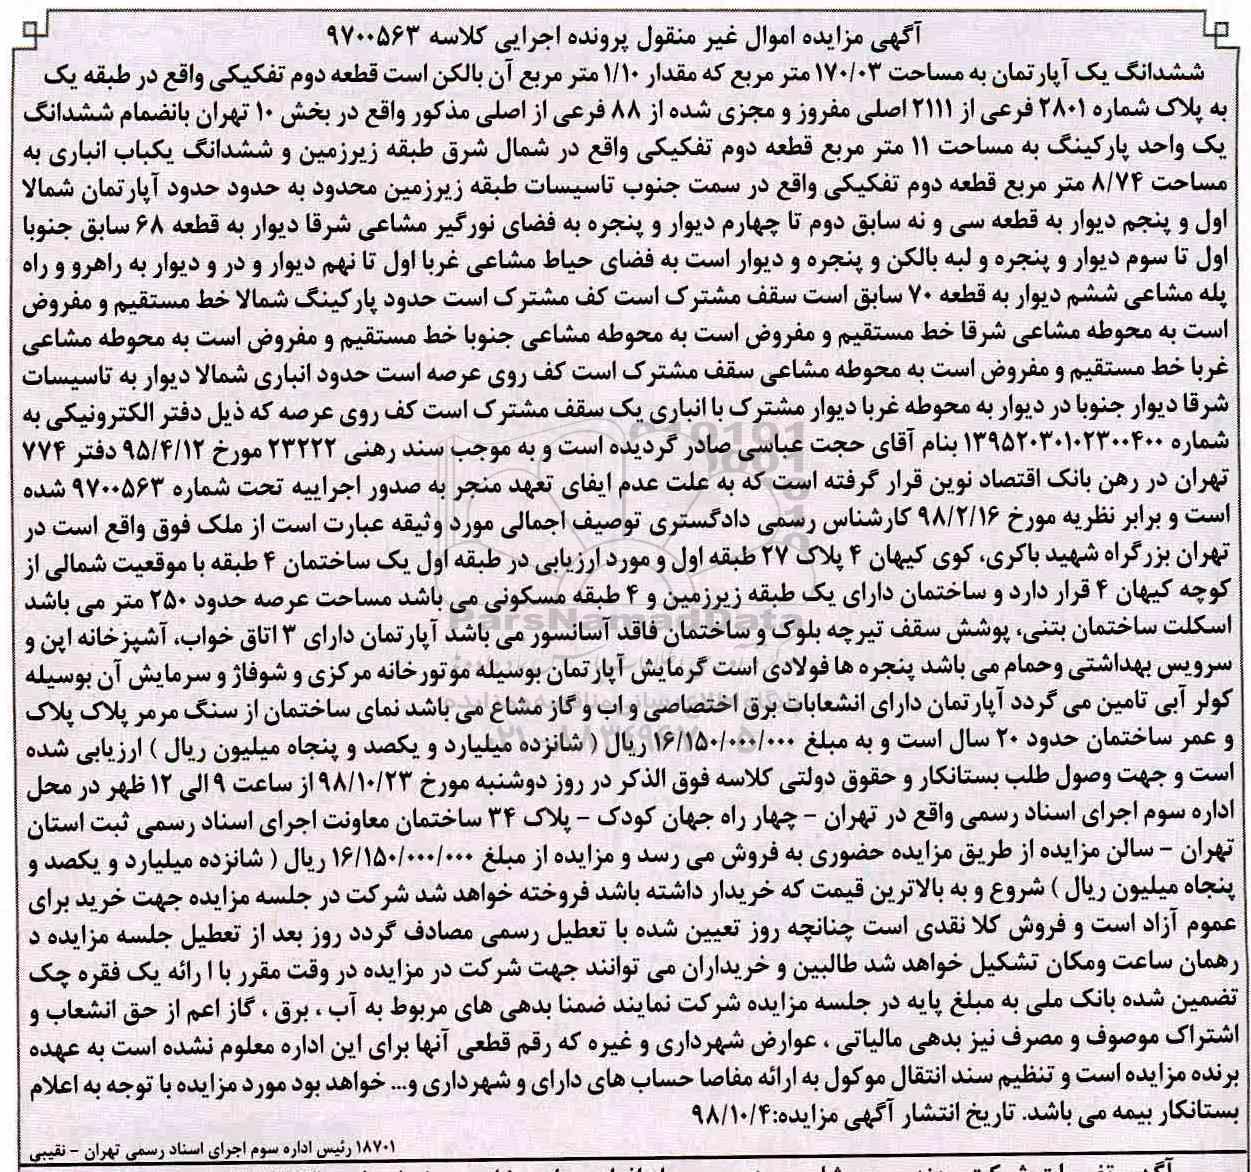 آگهی مزایده اموال غیر منقول پرونده اجرایی کلاسه ۹۷۰۰۵۶۳
ششدانگ یک آپارتمان به مساحت ۱۷۰/۰۳ متر مربع که مقدار ۱/۱۰ متر مربع آن بالکن است قطعه دوم تفکیکی واقع در طبقه یک
به پلاک شماره ۲۸۰۱ فرعی از ۲۱۱۱ اصلی مفروز و مجزی شده از ۸۸ فرعی از اصلی مذکور واقع در بخش ۱۰ تهران بانضمام ششدانگ
یک واحد پارکینگ به مساحت ۱۱ متر مربع قطعه دوم تفکیکی واقع در شمال شرق طبقه زیرزمین و ششدانگ یکباب انباری به
مساحت ۸/۷۴ متر مربع قطعه دوم تفکیکی واقع در سمت جنوب تاسیسات طبقه زیرزمین محدود به حدود حدود آپارتمان شمالا
اول و پنجم دیوار به قطعه سی و نه سابق دوم تا چهارم دیوار و پنجره به فضای نورگیر مشاعی شرقا دیوار به قطعه ۶۸ سابق جنوبا
اول تا سوم دیوار و پنجره و لبه بالکن و پنجره و دیوار است به فضای حیاط مشاعی غربا اول تا نهم دیوار و در و دیوار به راهرو و راه
پله مشاعی ششم دیوار به قطعه ۷۰ سابق است سقف مشترک است کف مشترک است حدود پارکینگ شمالا خط مستقیم و مفروض
است به محوطه مشاعی شرقا خط مستقیم و مفروض است به محوطه مشاعی جنوبا خط مستقیم و مفروض است به محوطه مشاعی
غربا خط مستقیم و مفروض است به محوطه مشاعی سقف مشترک است کف روی عرصه است حدود انباری شمالا دیوار به تاسیسات
شرقا دیوار جنوبا در دیوار به محوطه غربا دیوار مشترک با انباری یک سقف مشترک است کف روی عرصه که ذیل دفتر الکترونیکی به
شماره ۱۳۹۵۲۰۳۰۱۰۲۳۰۰۴۰۰ بنام آقای حجت عباسی صادر گردیده است و به موجب سند رهنی ۲۳۲۲۲ مورخ ۹۵/۴/۱۲ دفتر ۷۷۴
تهران در رهن بانک اقتصاد نوین قرار گرفته است که به علت عدم ایفای تعهد منجر به صدور اجراییه تحت شماره ۹۷۰۰۵۶۳ شده
است و برابر نظریه مورخ ۹۸/۲/۱۶ کارشناس رسمی دادگستری توصیف اجمالی مورد وثیقه عبارت است از ملک فوق واقع است در
تهران بزرگراه شهید باکری، کوی کیهان ۴ پلاک ۲۷ طبقه اول و مورد ارزیابی در طبقه اول یک ساختمان ۴ طبقه با موقعیت شمالی از
کوچه کیهان ۴ قرار دارد و ساختمان دارای یک طبقه زیرزمین و ۴ طبقه مسکونی می باشد مساحت عرصه حدود ۲۵۰ متر می باشد
اسکلت ساختمان بتنی، پوشش سقف تیرچه بلوک و ساختمان فاقد آسانسور می باشد آپارتمان دارای ۳ اتاق خواب، آشپزخانه اپن و
سرویس بهداشتی وحمام می باشد پنجره ها فولادی است گرمایش آپارتمان بوسیله موتورخانه مرکزی و شوفاژ و سرمایش آن بوسیله
کولر آبی تامین می گردد آپارتمان دارای انشعابات برق اختصاصی و اب و گاز مشاع می باشد نمای ساختمان از سنگ مرمر پلاک پلاک
و عمر ساختمان حدود ۲۰ سال است و به مبلغ ۱۶/۱۵۰/۰۰۰/۰۰۰ ریال ( شانزده میلیارد و یکصد و پنجاه میلیون ریال ) ارزیابی شده
است و جهت وصول طلب بستانکار و حقوق دولتی کلاسه فوق الذکر در روز دوشنبه مورخ ۹۸/۱۰/۲۳ از ساعت ۹ الی ۱۲ ظهر در محل
اداره سوم اجرای اسناد رسمی واقع در تهران - چهار راه جهان کودک - پلاک ۳۴ ساختمان معاونت اجرای اسناد رسمی ثبت استان
تهران - سالن مزایده از طریق مزایده حضوری به فروش می رسد و مزایده از مبلغ ۱۶/۱۵۰/۰۰۰/۰۰۰ ریال ( شانزده میلیارد و یکصد و
پنجاه میلیون ریال ) شروع و به بالاترین قیمت که خریدار داشته باشد فروخته خواهد شد شرکت در جلسه مزایده جهت خرید برای
عموم آزاد است و فروش کلا نقدی است چنانچه روز تعیین شده با تعطیل رسمی مصادف گردد روز بعد از تعطیل جلسه مزایده د
رهمان ساعت ومکان تشکیل خواهد شد طالبین و خریداران می توانند جهت شرکت در مزایده در وقت مقرر با ا رائه یک فقره چک
تضمین شده بانک ملی به مبلغ پایه در جلسه مزایده شرکت نمایند ضمنا بدهی های مربوط به آب ، برق ، گاز اعم از حق انشعاب و
اشتراک موصوف و مصرف نیز بدهی مالیاتی ، عوارض شهرداری و غیره که رقم قطعی آنها برای این اداره معلوم نشده است به عهده
برنده مزایده است و تنظیم سند انتقال موکول به ارائه مفاصا حساب های دارای و شهرداری و... خواهد بود مورد مزایده با توجه به اعلام
بستانکار بیمه می باشد. تاریخ انتشار آگهی مزایده:۹۸/۱۰/۴
۱۸۷۰۱ رئیس اداره سوم اجرای اسناد رسمی تهران - نقیبی
ParsNamadData